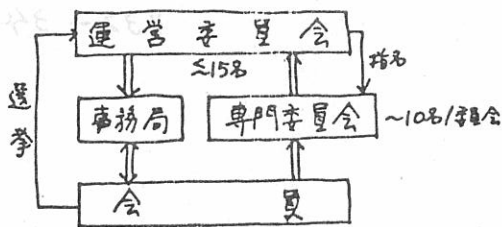 運営委員会
≲15名
指名
選挙
事務局
専門委員会
~10名/委員会
会員